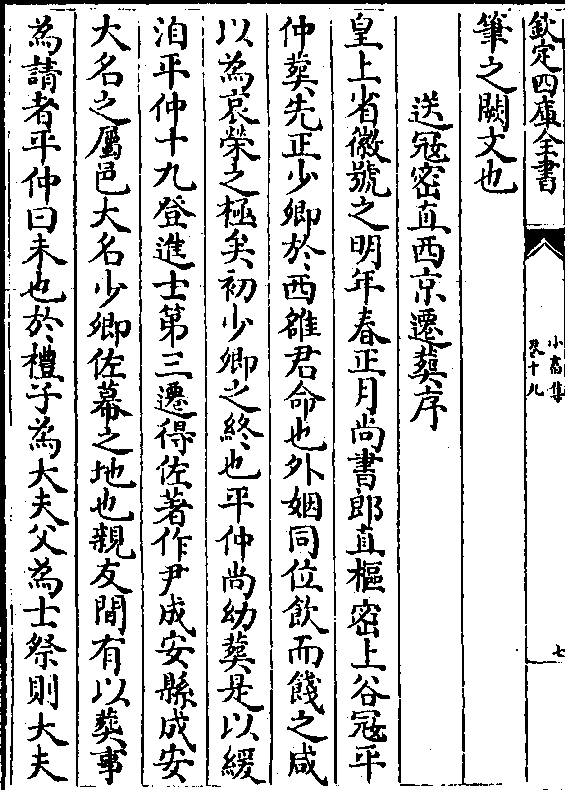 欽定四庫全書
小畜集
卷十九
七
筆之闕文也
送冦密直西京遷葬序
皇上省徽號之明年春正月尚書郎直樞密上谷冦平
仲葬先正少卿於西雒君命也外姻同位飲而餞之咸
以為哀榮之極矣初少卿之終也平仲尚幼葬是以緩
洎平仲十九登進士第三遷得佐著作尹成安縣成安
大名之屬邑大名少卿佐幕之地也親友間有以葬事
為請者平仲曰未也於禮子為大夫父為士祭則大夫